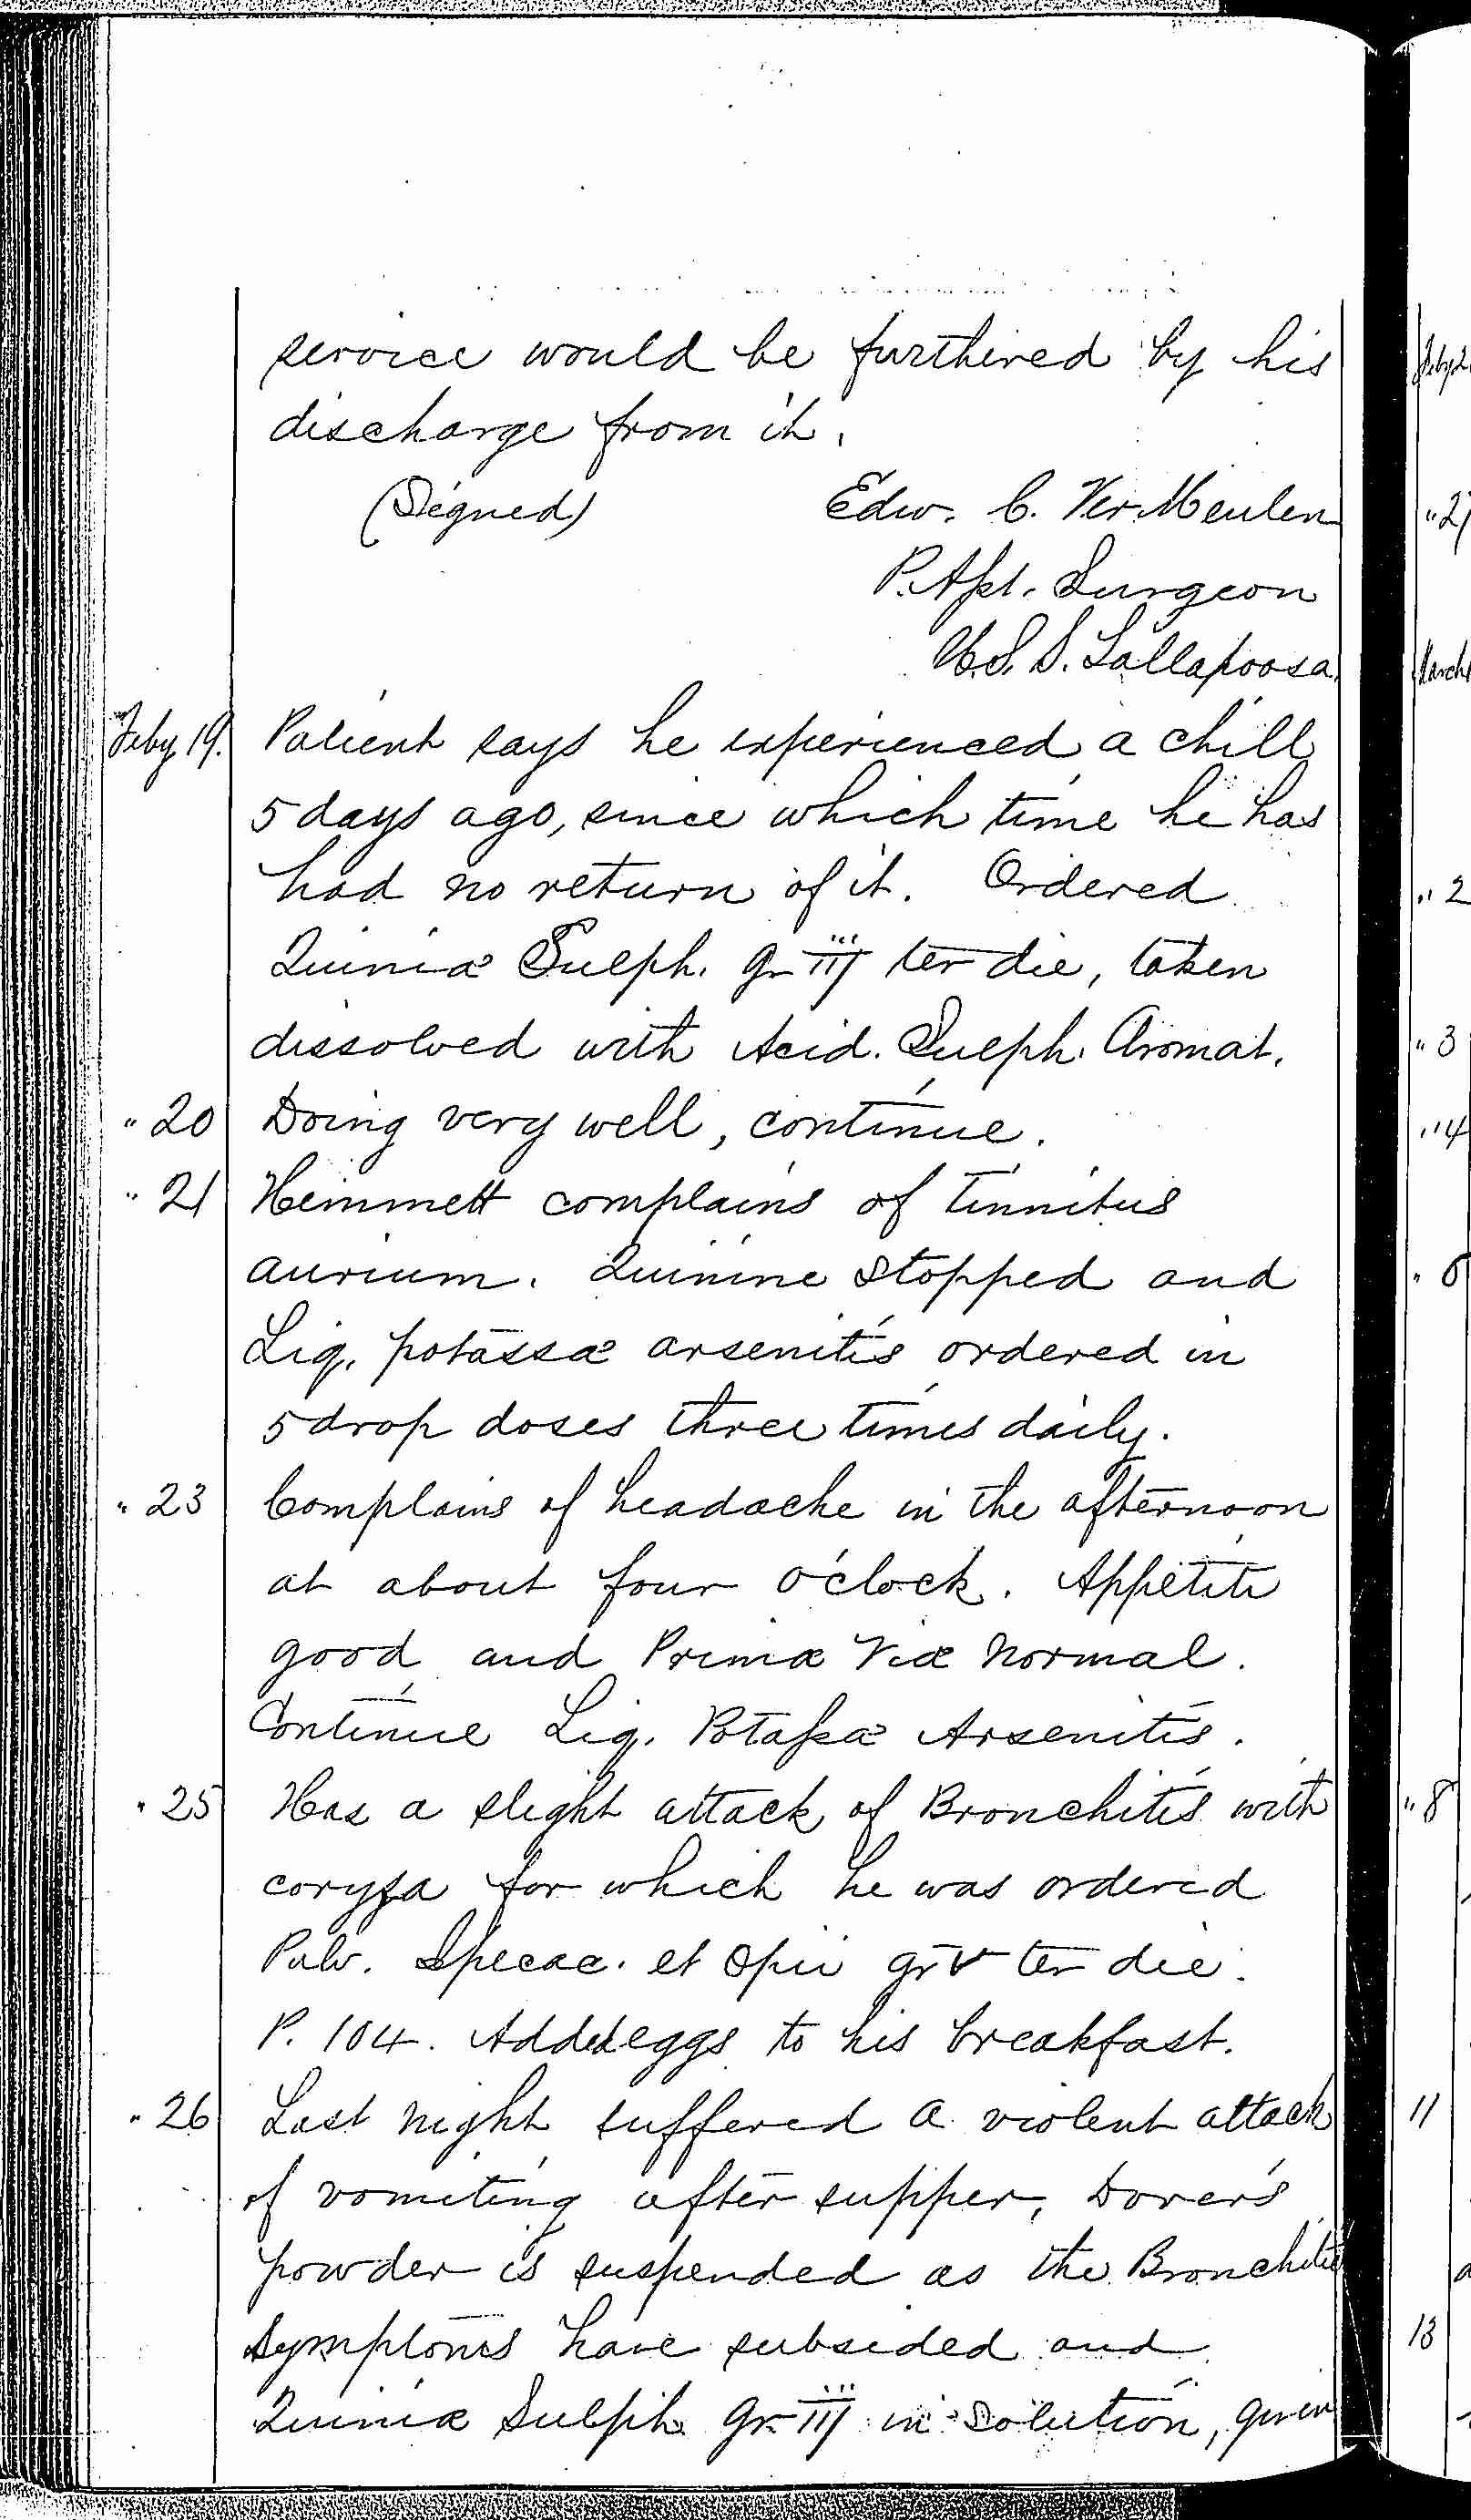 service would be furthered by his
discharge from it.
(Signed) Edw. C. Ver Meulen
P. Asst. Surgeon
U.S.S. Tallapoosa.
Feby 19. Patient says he experienced a chill
5 days ago, since which time he has
had no return of it. Ordered
Quiniæ Sulph. gr iij ter die, taken
dissolved with Acid. Sulph. Aromat.
" 20 Doing very well, continue.
" 21 Hemmett complains of tinnitus
aurium. Quinine stopped and
Liq. potassæ arsenitis ordered in
5 drop doses three times daily.
" 23 Complains of headache in the afternoon
at about four o'clock. Appetite
good and Primæ Viæ normal.
Continue Liq. Potassæ Arsenitis.
" 25 Has a slight attack of Bronchitis with
coryza for which he was ordered
Pulv. Ipecac. et Opii gr v ter die.
P. 104. Added eggs to his breakfast.
" 26 Last night suffered a violent attack
of vomiting after supper, Dover's
powder is suspended as the Bronchitis
symptoms have subsided and
Quiniæ Sulph. gr iij in solution, given
Feby 2
" 27
March
" 2
" 3
" 4
" 6
" 8
11
13